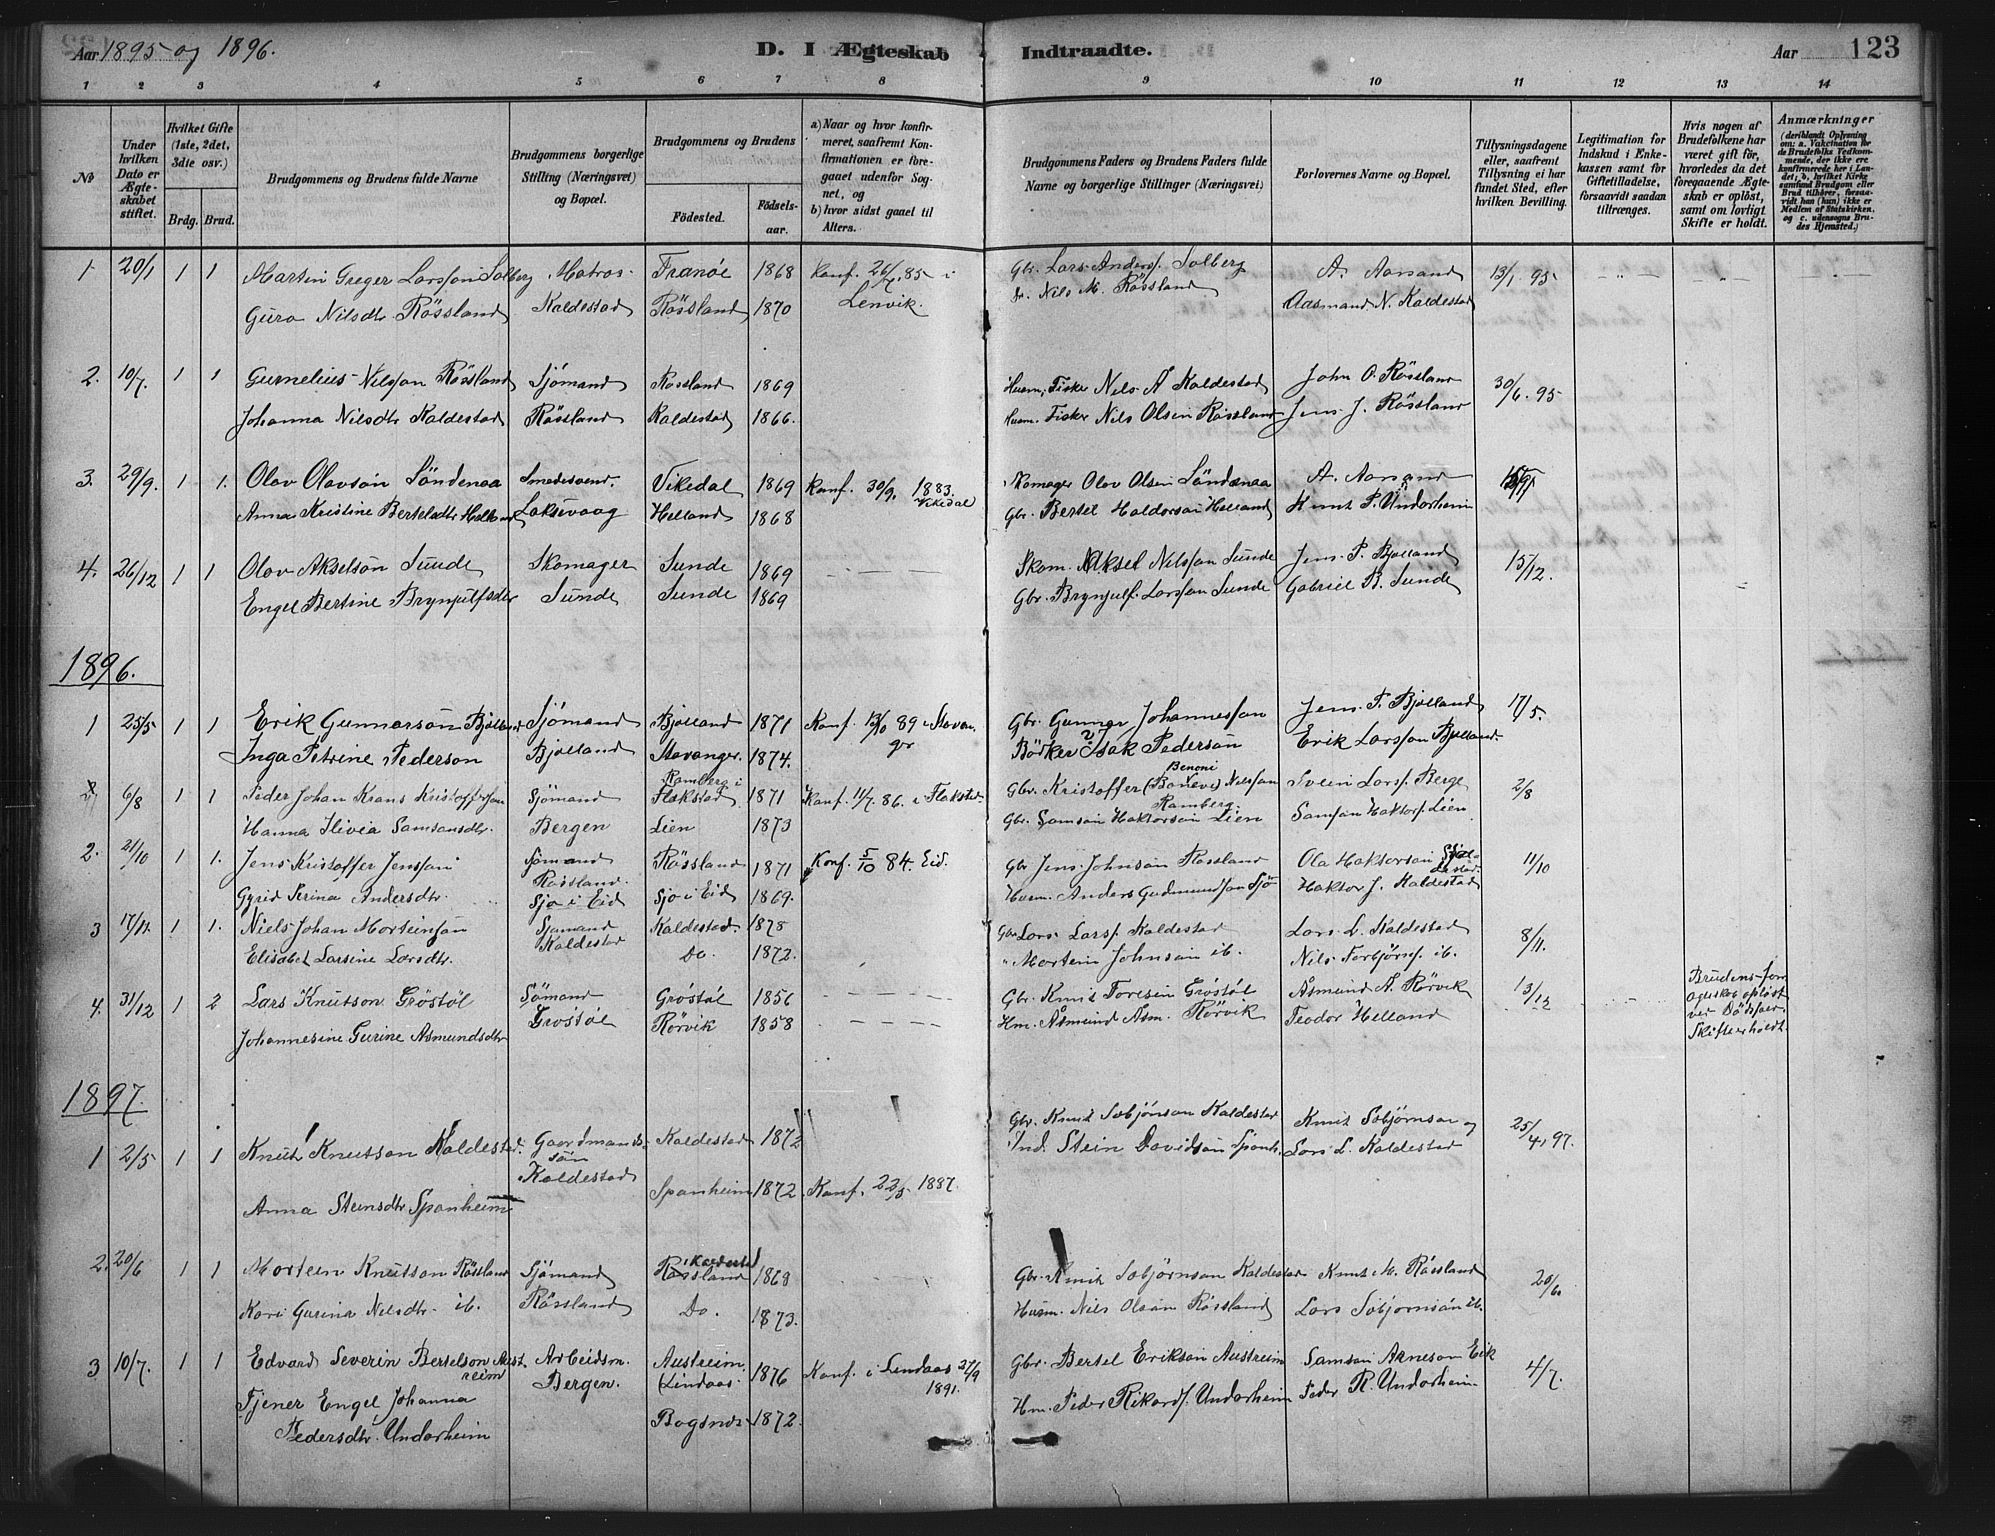 Aar 1895 og 1896.
D. I Ægteskab Indtraadte.
Aar 123
1 2 3 4 5 6 7 8 9 10 11 12 13 14
No
Under hvilken Dato er Ægteskabet stiftet.
Hvilket Gifte (1ste, 2det, 3die osv.)
Brdg. Brud.
Brudgommens og Brudens fulde Navne
Brudgommens borgerlige Stilling (Næringsvei) og Bopæl.
Brudgommens og Brudens
Födested.
Födselsaar.
a) Naar og hvor konfirmeret, saafremt Konfirmationen er foregaaet udenfor Sognet, og
b) hvor sidst gaaet til Alters.
Brudgommens Faders og Brudens Faders fulde Navne og borgerlige Stillinger (Næringsvei)
Forlovernes Navne og Bopæl.
Tillysningsdagene eller, saafremt Tillysning ei har fundet Sted, efter hvilken Bevilling.
Legitimation for Indskud i Enkekassen samt for Giftetilladelse, forsaavidt saadan tiltrænges.
Hvis nogen af Brudefolkene har været gift för, hvorledes da det foregaaende Ægteskab er oplöst, samt om lovligt Skifte er holdt.
Anmærkninger
(deriblandt Oplysning om: a. Vakcination for de Brudefolks Vedkommende, der ikke ere konfirmerede her i Landet; b. hvilket Kirkesamfund Brudgom eller Brud tilhörer, forsaavidt han (hun) ikke er Medlem af Statskirken, og c. udensogns Brudes Hjemsted.)
1 20/1 1 1 Martin Greger Larsson Solberg Matros Tranöe 1868 Konf. 26/7 85 i Gbr. Lars Anders. Solberg A. Aarsand 13/1 95
Guro Nilsdtr Rössland Kaldestad Rössland 1870 Lenvik. Nils M. Rössland Aasmand N. Kaldestad
2. 10/7. 1 1 Gurnelius Nilsson Rössland Sjömand Rossland 1869 Husm. Fisker Nils A Kaldestad John O. Rössland 30/6. 95
Johanna Nilsdtr Kaldestad Rössland Kaldestad 1866. Husm. Fisker Nils Olsen Rossland Jens J. Rössland
3. 29/9. 1 1. Olav Olavson Söndenaa Smedesvend. Vikedal 1869 Konf. 30/9. 1883. Vikedal Skomager Olav Olsen Söndenaa A. Aarsand
Anna Kristine Berteldtr Helland Laksevaag Helland 1868 Gbr. Bertel Haldorson Helland Knut P. Undarheim
4. 26/12 1 1 Olav Akselson Sunde Skomager Sunde 1869 Skom. Aksel Nilsson Sunde Jens P. Bjolland 15/12.
Engel Bertine Brynjulfsdtr Sunde Sunde 1869 Gbr. Brynjulf Larsson Sunde Gabriel B. Sunde
1896.
1 25/5 1 1 Erik Gunnarson Bjolland Sjömand Bjolland 1871 Konf. 13/10 89 i Stavanger Gbr. Gunnar Johannesson Jens P. Bjolland 17/5.
Inga Petrine Pederson Bjolland Stavanger. 1874. Bödker Isak Pederson Erik Larsson Bjolland
6/8 1 1 Peder Johan Krans Kristoffersson Sjömand Ramberg i Flakstad 1871 Konf. 11/7. 86. i Flakstad Gbr. Kristoffer Benoni Nilsson Ramberg. Svein Lars. Berge 2/8
Hanna Ilivia Samsonsdtr. Bergen Lien 1873 Gbr. Samson Haktorson Lien Samson Haktors. Lien
2. 21/10 1 1. Jens Kristoffer Jensson Sjömand Rossland. Rössland 1871 Konf. 5/10 84. Eid. Gbr Jens Johnson Rossland Ola Haktorson 11/10
Gyrid Serina Andersdtr. Sjo i Eid Sjo i Eid 1869. Husm. Anders Gudmundson Sjö Haktor J. Kaldestad
3 17/11. 1 1. Niels Johan Morteinson Sjomand Kaldestad. 1878 Gbr Lars Lars. Kaldestad Lars L. Kaldestad 8/11.
Elisabet Larsine Larsdtr. Kaldestad Do. 1872. " Mortein Johnson ib. Nils Torbjörns. ib.
4. 31/12 1 2 Lars Knutson Gröstöl Sjömand Gröstöl 1856 Gbr. Knut Toresen Gröstöl Asmund A. Rörvik 13/12 Brudens fore Ægteskab oplöst ved Dödsfald Skifte er holdt
Johannesine Gurine Asmundsdtr Grostöl Rörvik 1858 Hm. Åsmund Asm. Rörvik Teodor Helland
1897.
1 2/5 1 1 Knut Knutson Kaldestad. Gaardmandsson Kaldestad 1872 Gbr. Knut Sobjönson Kaldestad Knut Sobjörnson og 25/4. 97.
Anna Steinsdtr Spanheim Kaldestad Spanheim 1872. Konf. 22/5 1887. Ind. Stein Davidson Spanh. Lars L. Kaldestad
2. 20/6 1 1 Mortein Knutson Rössland Sjömand Kaldestad Rössland 1868 Gbr. Knut Sobjörnson Kaldestad Knut M. Rössland 20/6.
Kari Gurina Nilsdtr ib. Rössland Do. 1873. Husm. Nils Olson Rössland Lars Sobjornson ib.
3 10/7. 1 1 Edvard Severin Bertelson Austreim Arbeidsm. Austreim 1876 Konf. i Lindaas 27/9 1891. Gbr. Bertel Erikson Austreim Samson Arneson Eik 4/7.
Tjener Engel Johanna Bergen. (Lindaas Hm. Peder Rikards. Undarheim Peder R. Undarheim
Pedersdtr. Undarheim Bogsnes 1872.